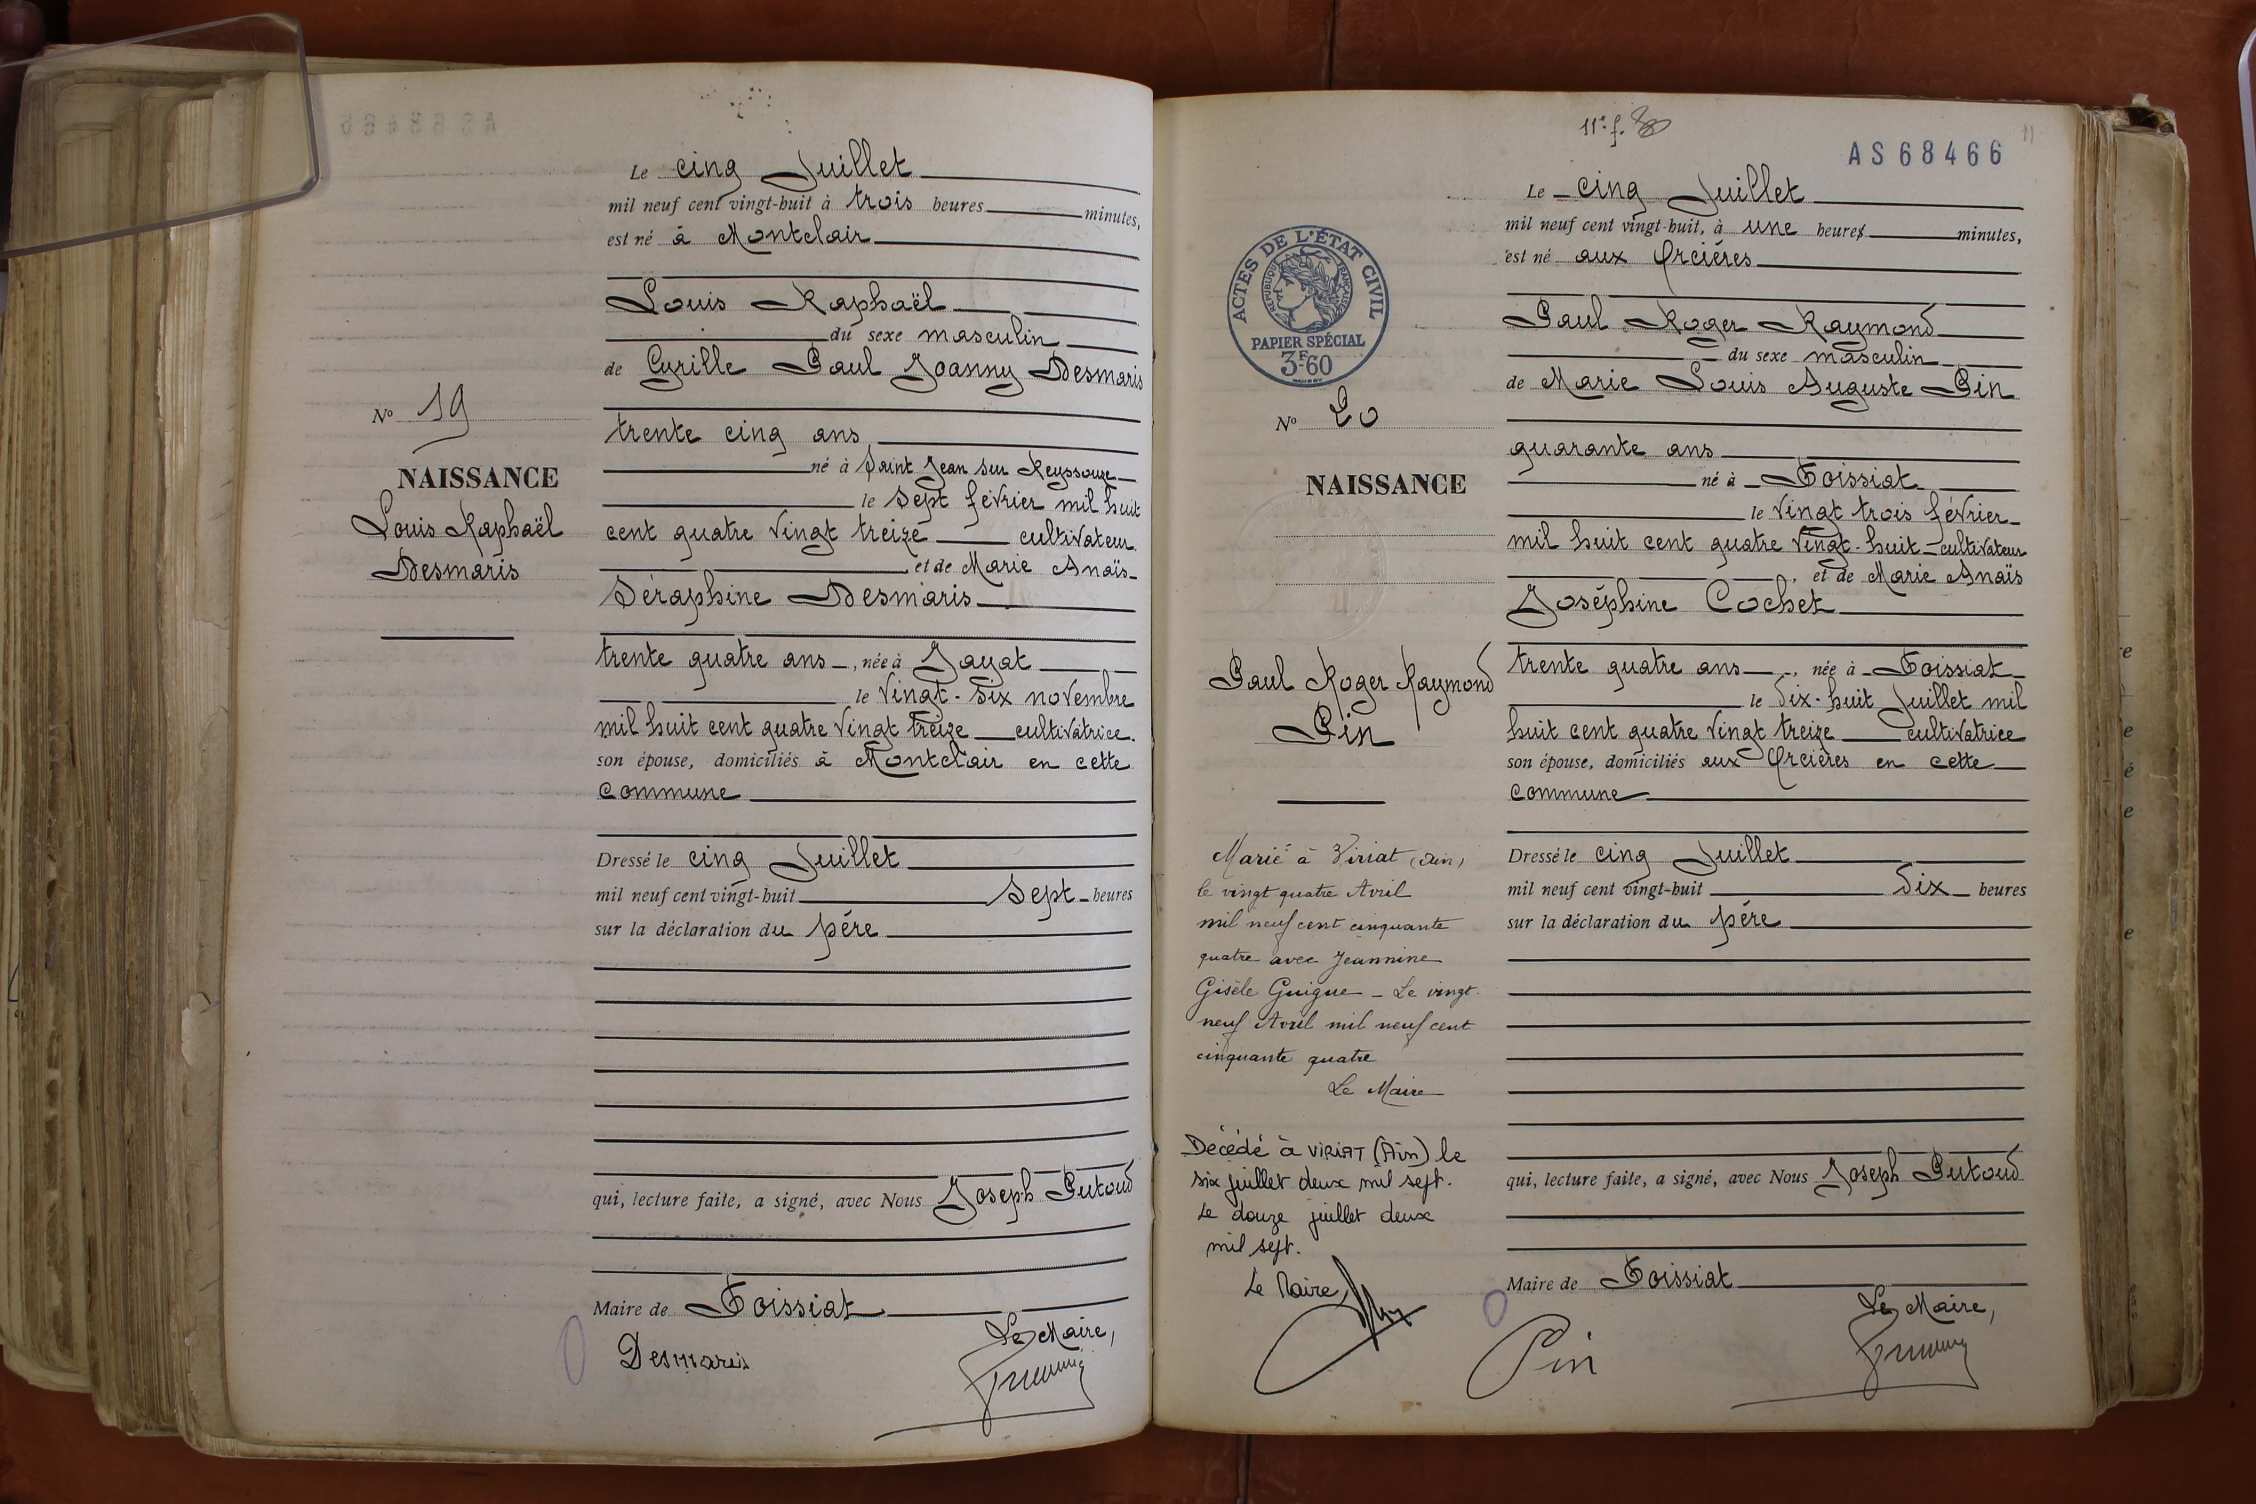 Le cinq Juillet
mil neuf cent vingt-huit à trois heures minutes,
est né à Montclair
Louis Raphaël
du sexe masculin
de Cyrille Paul Joanny Desmaris
trente cinq ans
né à Saint Jean sur Reyssouze
le sept février mil huit
cent quatre vingt treize cultivateur
et de Marie Anaïs
Séraphine Desmaris
trente quatre ans, née à Jayat
le vingt-six novembre
mil huit cent quatre vingt treize cultivatrice.
son épouse, domiciliés à Montclair en cette
commune
Dressé le cinq Juillet
mil neuf cent vingt-huit sept heures
sur la déclaration du père
qui, lecture faite, a signé, avec Nous Joseph Putoud
Maire de Foissiat
Le Maire,
Desmaris
No 19
NAISSANCE
Louis Raphaël
Desmaris
11e f.
AS68466
11
Le cinq Juillet
mil neuf cent vingt-huit, à une heures minutes,
est né aux Orcières
Paul Roger Raymond
du sexe masculin
de Marie Louis Auguste Pin
quarante ans
né à Foissiat
le vingt trois février
mil huit cent quatre vingt-huit cultivateur
, et de Marie Anaïs
Joséphine Cochet
trente quatre ans, née à Foissiat
le dix-huit Juillet mil
huit cent quatre vingt treize cultivatrice
son épouse, domiciliés aux Orcières en cette
commune
Dressé le cinq Juillet
mil neuf cent vingt-huit dix heures
sur la déclaration du père
qui, lecture faite, a signé, avec Nous Joseph Putoud
Maire de Foissiat
Le Maire,
Pin
ACTES DE L'ÉTAT CIVIL
RÉPUBLIQUE FRANÇAISE
PAPIER SPÉCIAL
3F60
No 20
NAISSANCE
Paul Roger Raymond
Pin
Marié à Viriat (Ain)
le vingt quatre Avril
mil neuf cent cinquante
quatre avec Jeannine
Gisèle Guigue - Le vingt
neuf Avril mil neuf cent
cinquante quatre
Le Maire
Décédé à VIRIAT (Ain) le
six juillet deux mil sept.
Le douze juillet deux
mil sept.
Le Maire,